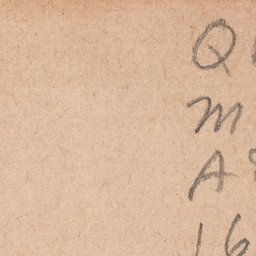 Q
M
A
16